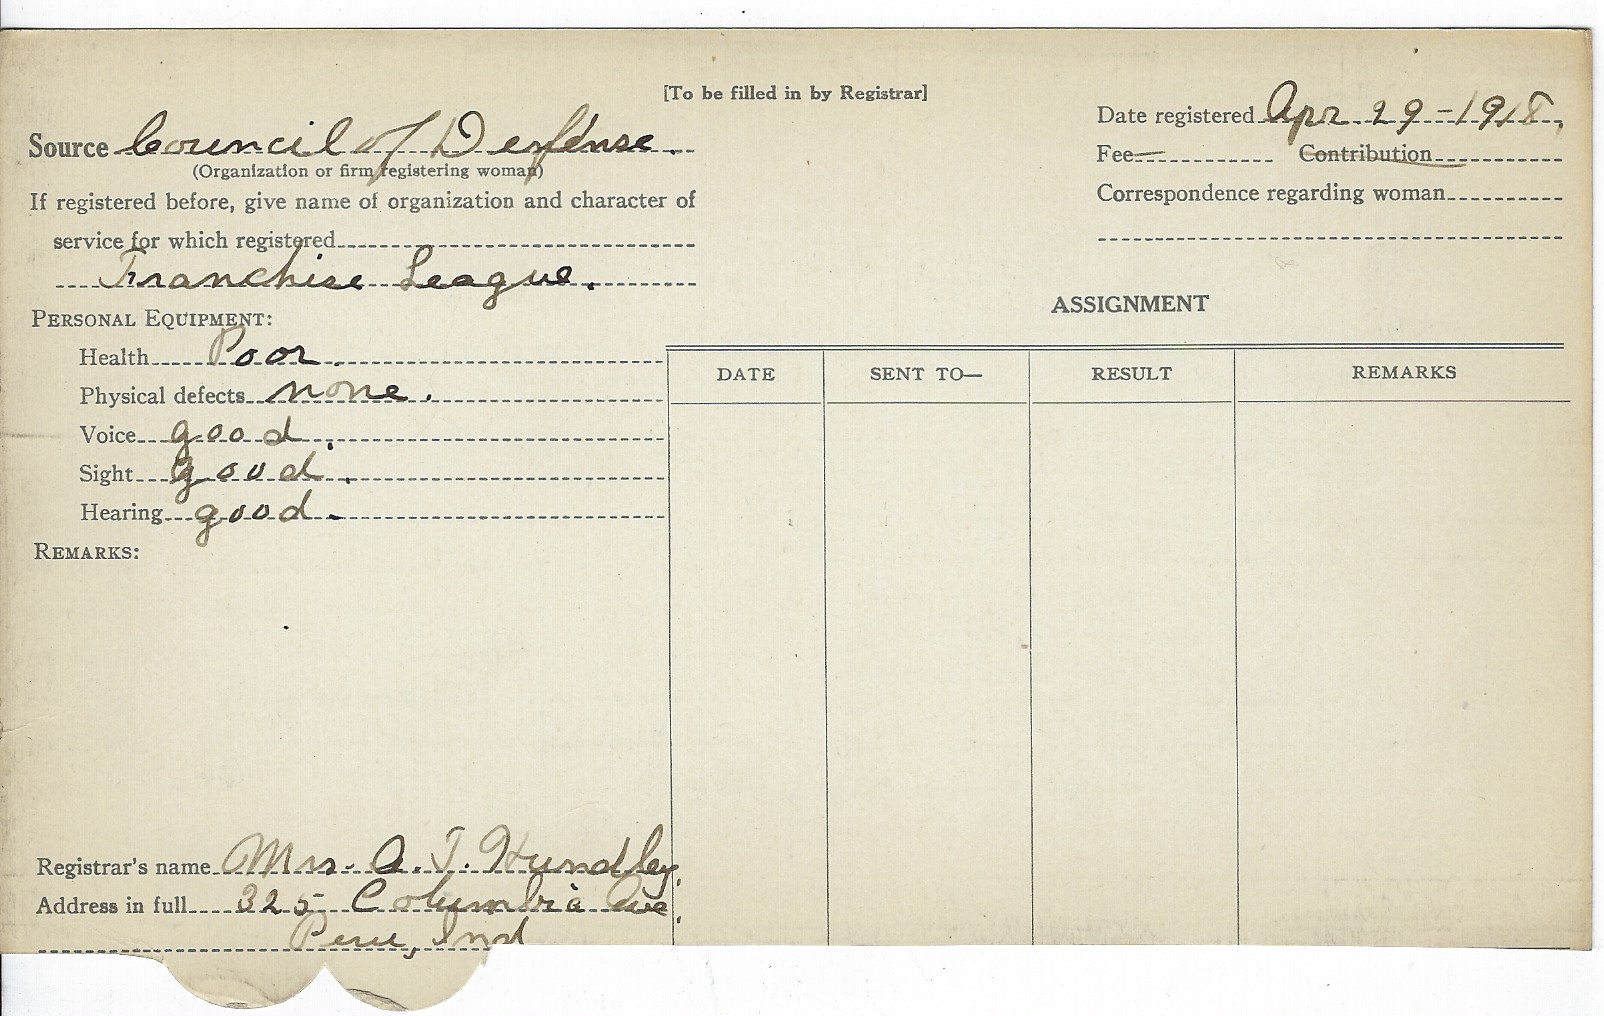 [To be filled in by Registrar]
Source Council of Defense.
(Organization or firm registering woman)
If registered before, give name of organization and character of
service for which registered
Franchise League.
PERSONAL EQUIPMENT:
Health Poor.
Physical defects none.
Voice good.
Sight good.
Hearing good.
REMARKS:
Registrar's name Mrs. A. T. Hundley.
Address in full 325 Columbia Ave.
Peru, Ind
Date registered Apr 29-1918.
Fee Contribution
Correspondence regarding woman
ASSIGNMENT
DATE SENT TO— RESULT REMARKS